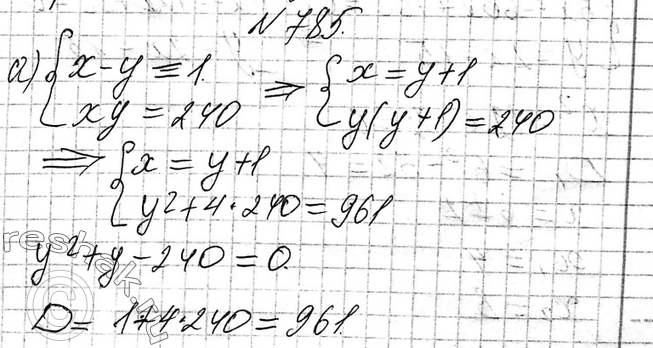 N 785.
a) { x - y = 1. xy = 240 ⇒ { x = y + 1 y(y+1) = 240
⇒ { x = y + 1 y² + 4·240 = 961
y² + y - 240 = 0.
D = 1+4·240 = 961
reshak.ru